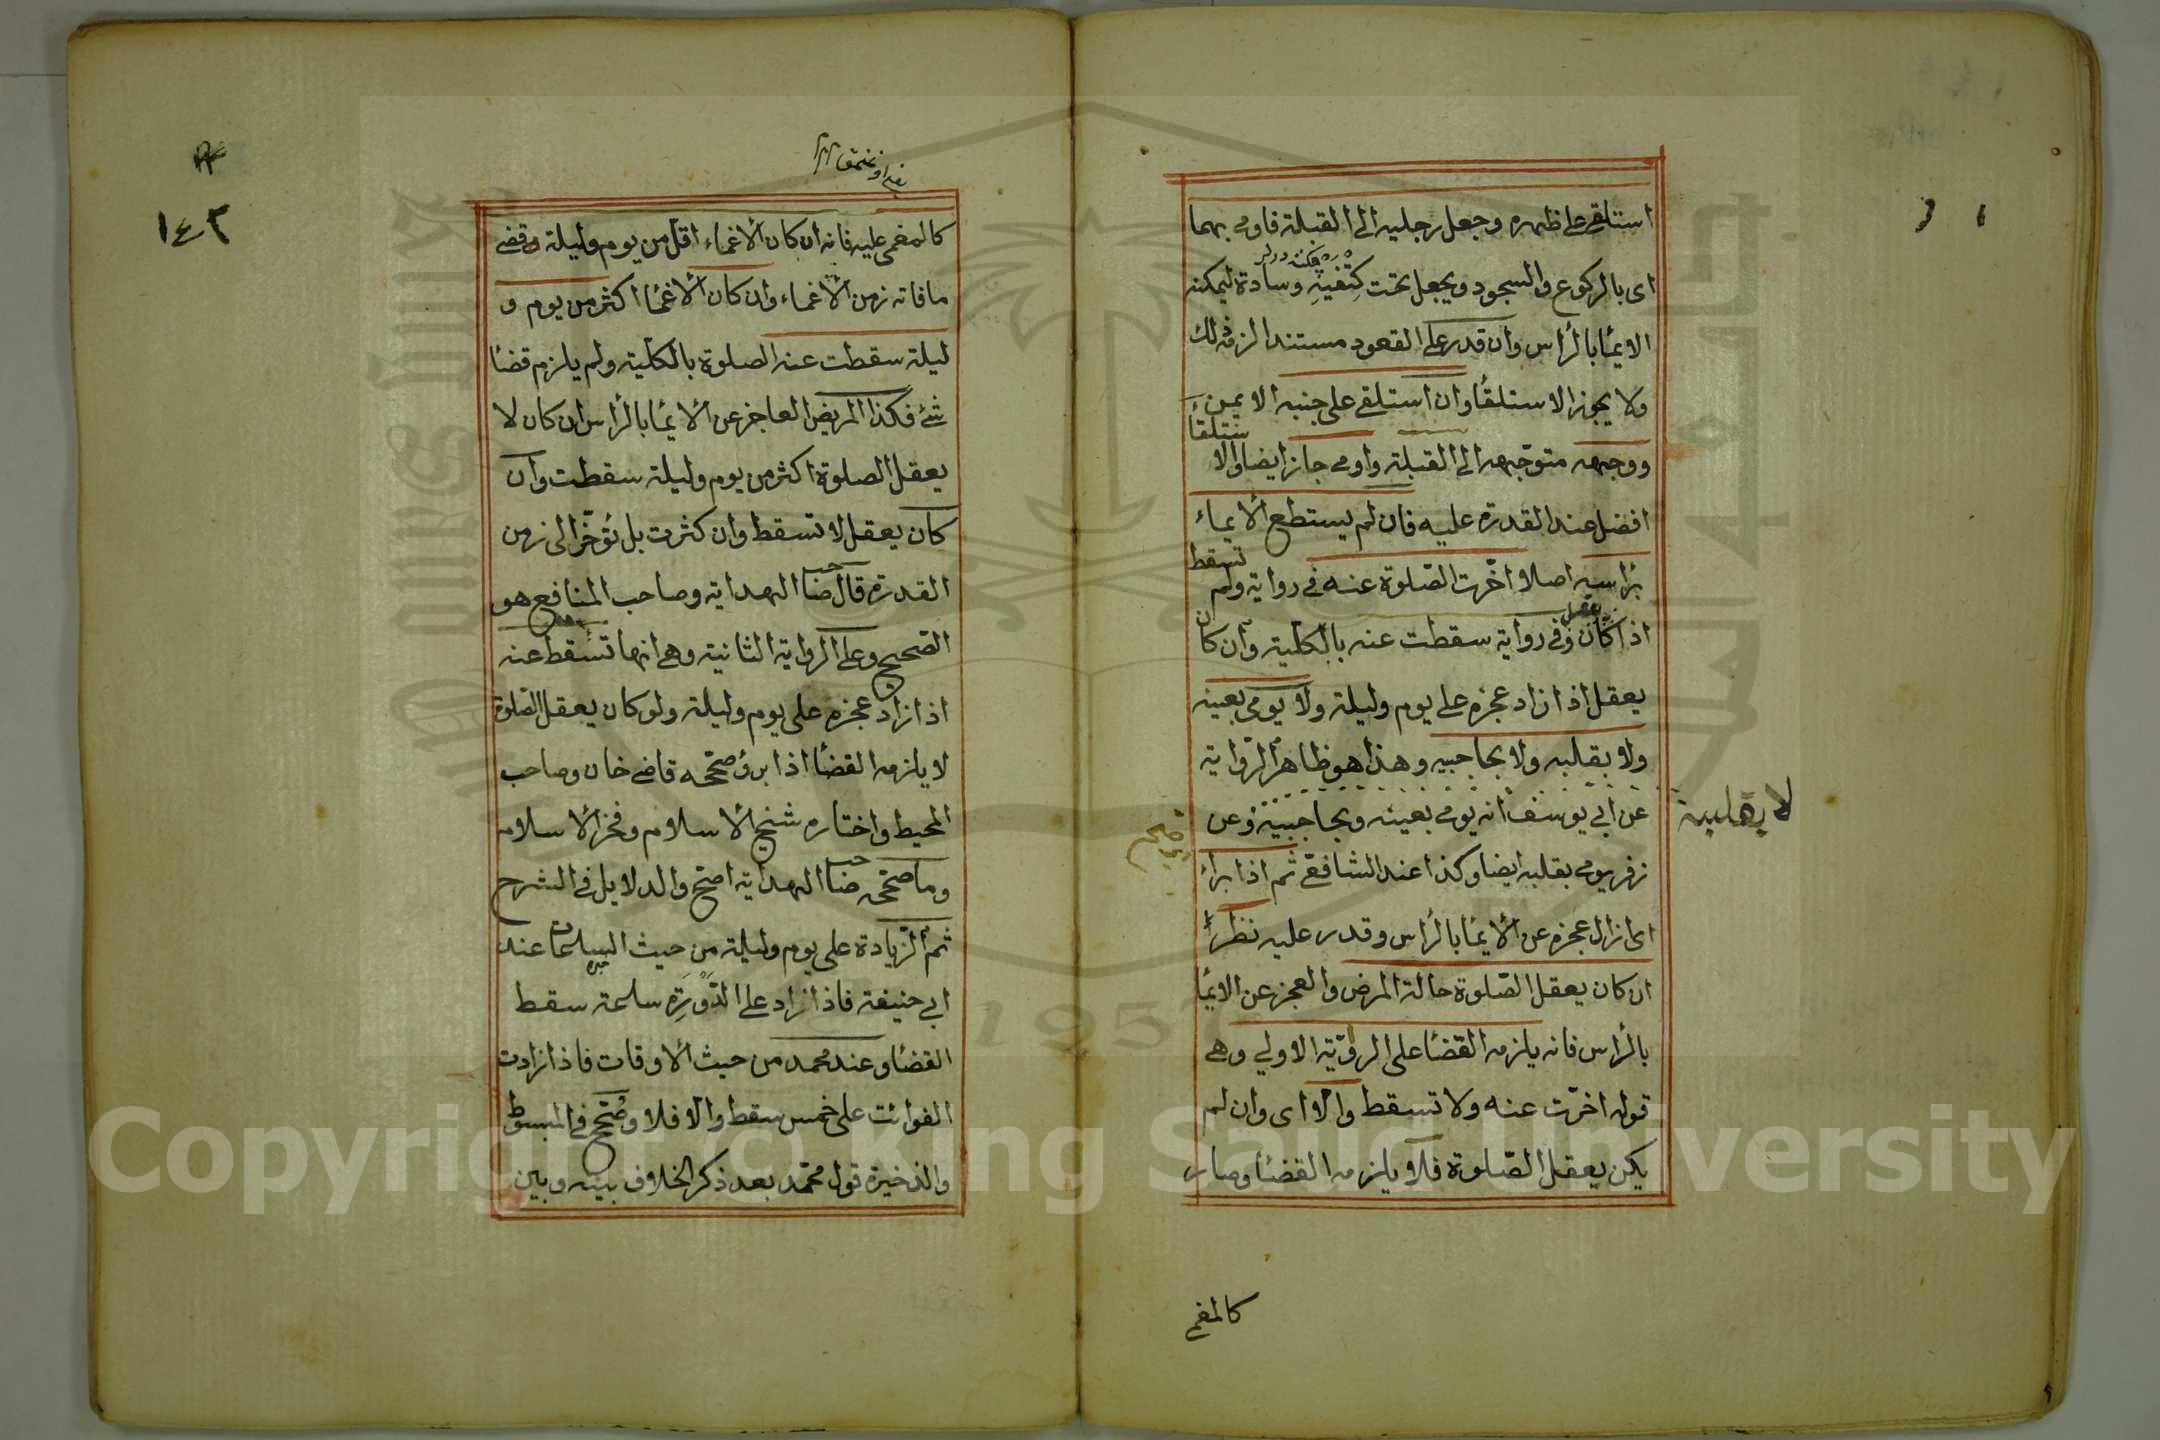 استلقى على ظهره وجعل رجليه الى القبلة فاومى بهما
اى بالركوع والسجود ويجعل تحت كتفيه وسادة ليمكنه
الايمأ بالرأس وان قدر على القعود مستندا لزم ذلك
ولا يجوز الاستلقأ وان استلقى على جنبه الايمن
ستلقأ
ووجهه متوجّهه الى القبلة واومى جاز ايضا والا
افضل عند القدرة عليه فان لم يستطع الايماء
تسقط
برأسه اصلا اخّرت الصّلوة عنه فى رواية ولم
يعقل
اذا كان وفى رواية سقطت عنه بالكلية وان كان
يعقل اذا زاد عجزه على يوم وليلة ولا يومى بعينه
ولا بقلبه ولا بحاجبيه وهذا هو ظاهر الرّواية
عن ابى يوسف انه يومى بعينه وبحاجبيه وعن
زفر يومى بقلبه ايضا وكذا عند الشافعى ثم اذا براء
اى زال عجزه عن الايمأ بالرأس وقدر عليه نظر
ان كان يعقل الصّلوة حالة المرض والعجز عن الايمأ
بالرأس فانه يلزمه القضأ على الروّية الاولى وهى
قوله اخرّت عنه ولا تسقط والا اى وان لم
يكن يعقل الصّلوة فلا يلزمه القضأ وصار
كالمغمى
صح
١٤٢
كالمغمى عليه فانه ان كان الاغماء اقل من يوم وليلة وقضى
ما فاته زمن الاغماء وان كان الاغمأ اكثر من يوم و
ليلة سقطت عنه الصلوة بالكلية ولم يلزم قضأ
شئ فكذا المريض العاجز عن الايمأ بالرأس ان كان لا
يعقل الصلوة اكثر من يوم وليلة سقطت وان
كان يعقل لا تسقط وان كثرت بل تؤخّر الى زمن
القدرة قال صاحب الهداية وصاحب المنافع هو
الصحيح وعلى الرواية الثانية وهى انها تسقط عنه
اذا زاد عجزه على يوم وليلة ولو كان يعقل الصّلوة
لا يلزمه القضأ اذا برئ وصححه قاضى خان وصاحب
المحيط واختاره شيخ الاسلام وفخر الاسلام
وما صححه صاحب الهداية اصحّ والدلايل فى الشرح
ثم الزيادة على يوم وليلة من حيث الساعات عند
ابى حنيفة فاذا زاد على الدّورة ساعة سقط
القضأ وعند محمد من حيث الاوقات فاذا زادت
الفوائت على خمس سقط والا فلا وصُحّح فى المبسوط
والذخيرة قول محمّد بعد ذكر الخلاف بينه وبين
Copyright © King Saud University
1957